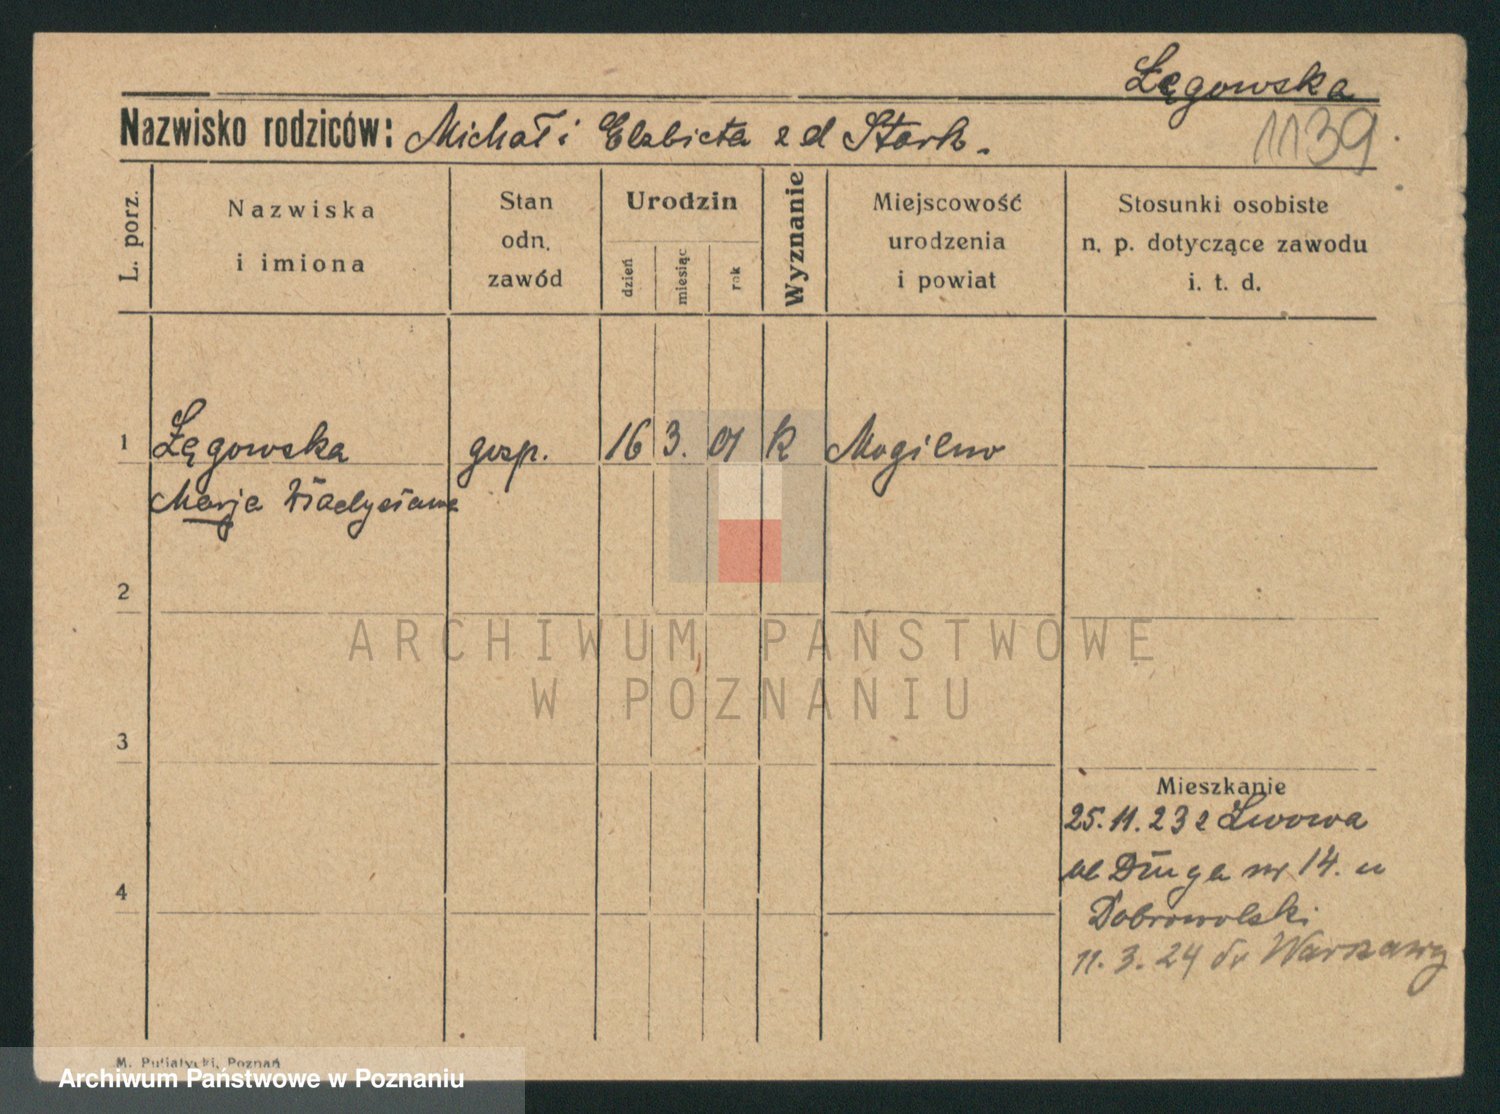 Łęgowska
Nazwisko rodziców: Michał i Elzbieta z d Stark.
1139
L. porz.
Nazwiska
i imiona
Stan
odn.
zawód
Urodzin
dzień
miesiąc
rok
Wyznanie
Miejscowość
urodzenia
i powiat
Stosunki osobiste
n. p. dotyczące zawodu
i. t. d.
1 Łęgowska gosp. 16 3. 01 k Mogilno
Marja Władysława
2
ARCHIWUM PAŃSTWOWE
W POZNANIU
3
Mieszkanie
25.11.23 z Lwowa
ul Długa nr 14. u
4
Dobrowolski
11.3.24 do Warszawy
M. Putiatycki, Poznań
Archiwum Państwowe w Poznaniu